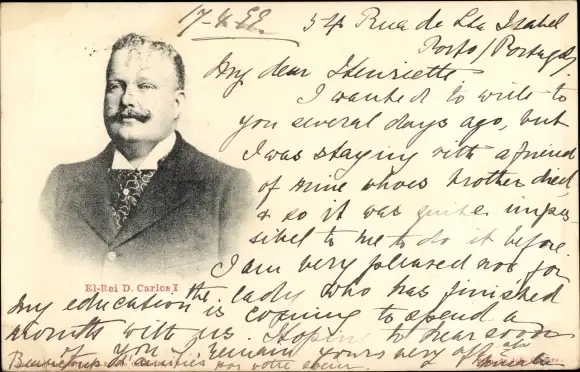 54 Rua de Sta Isabel
Porto/Portugal/
My dear Henriette
I wanted to write to
you several days ago, but
I was staying with a friend
of mine whoes brother died,
& so it was quite impos-
sibel to me to do it before.
I am very pleased now for
El-Rei D. Carlos I
my education the lady who has finished
is coming to spend a
month with us. Hoping to hear soon
of you I remain yours very aff
Beaucoup d'amitiés por votre soeur.